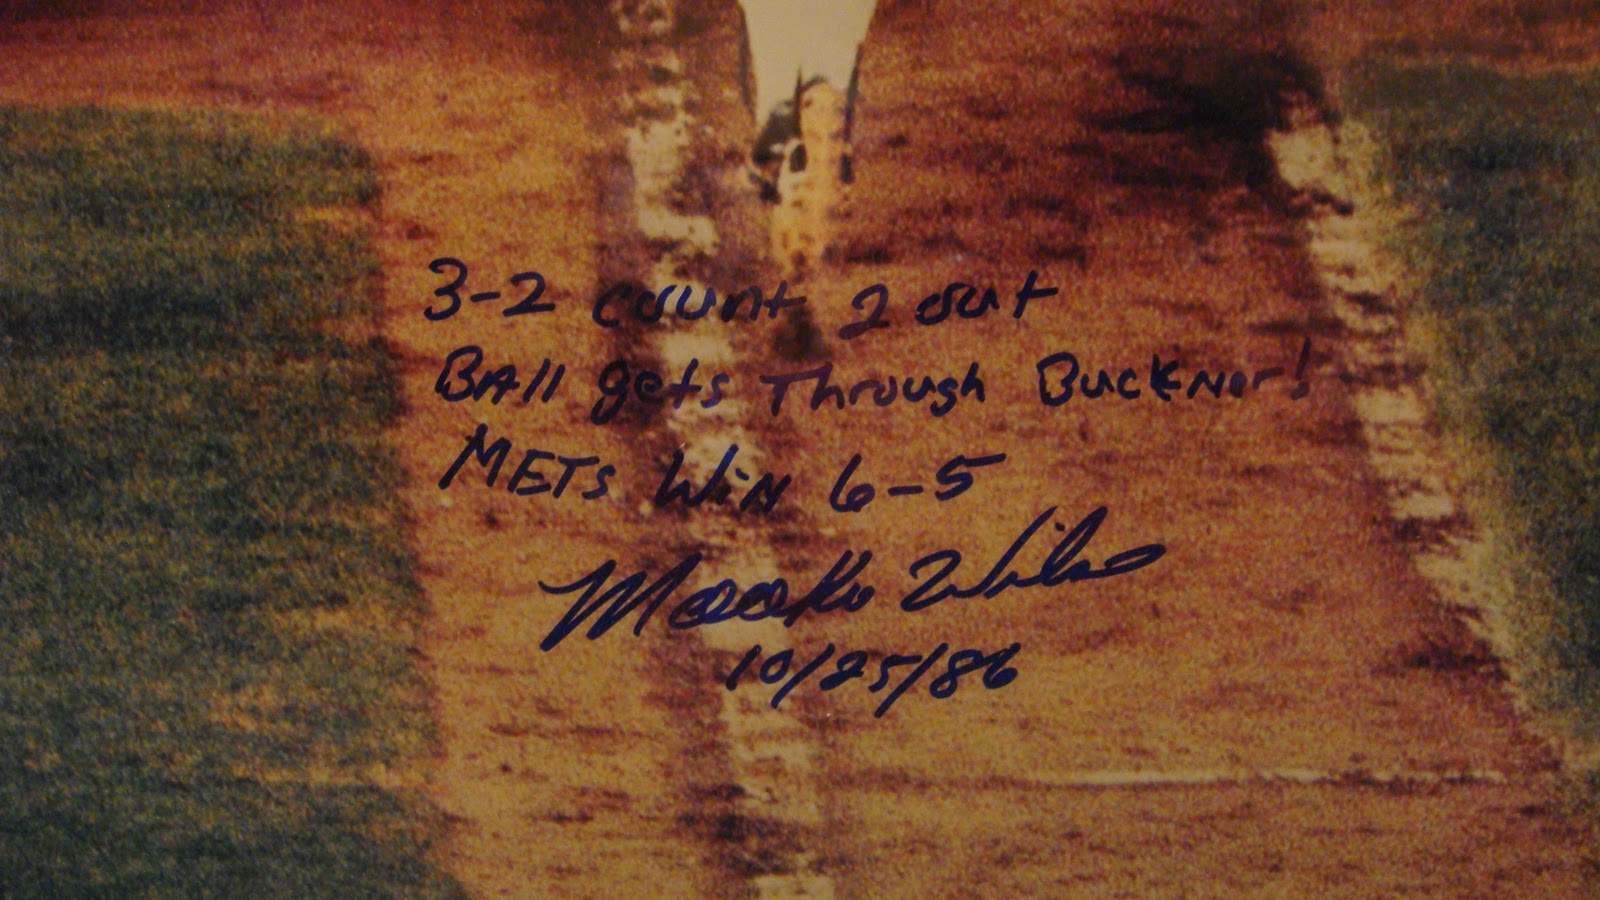 3-2 count 2 out
BAll gets Through Buckner!
METs WiN 6-5
Mookie Wilson
10/25/86